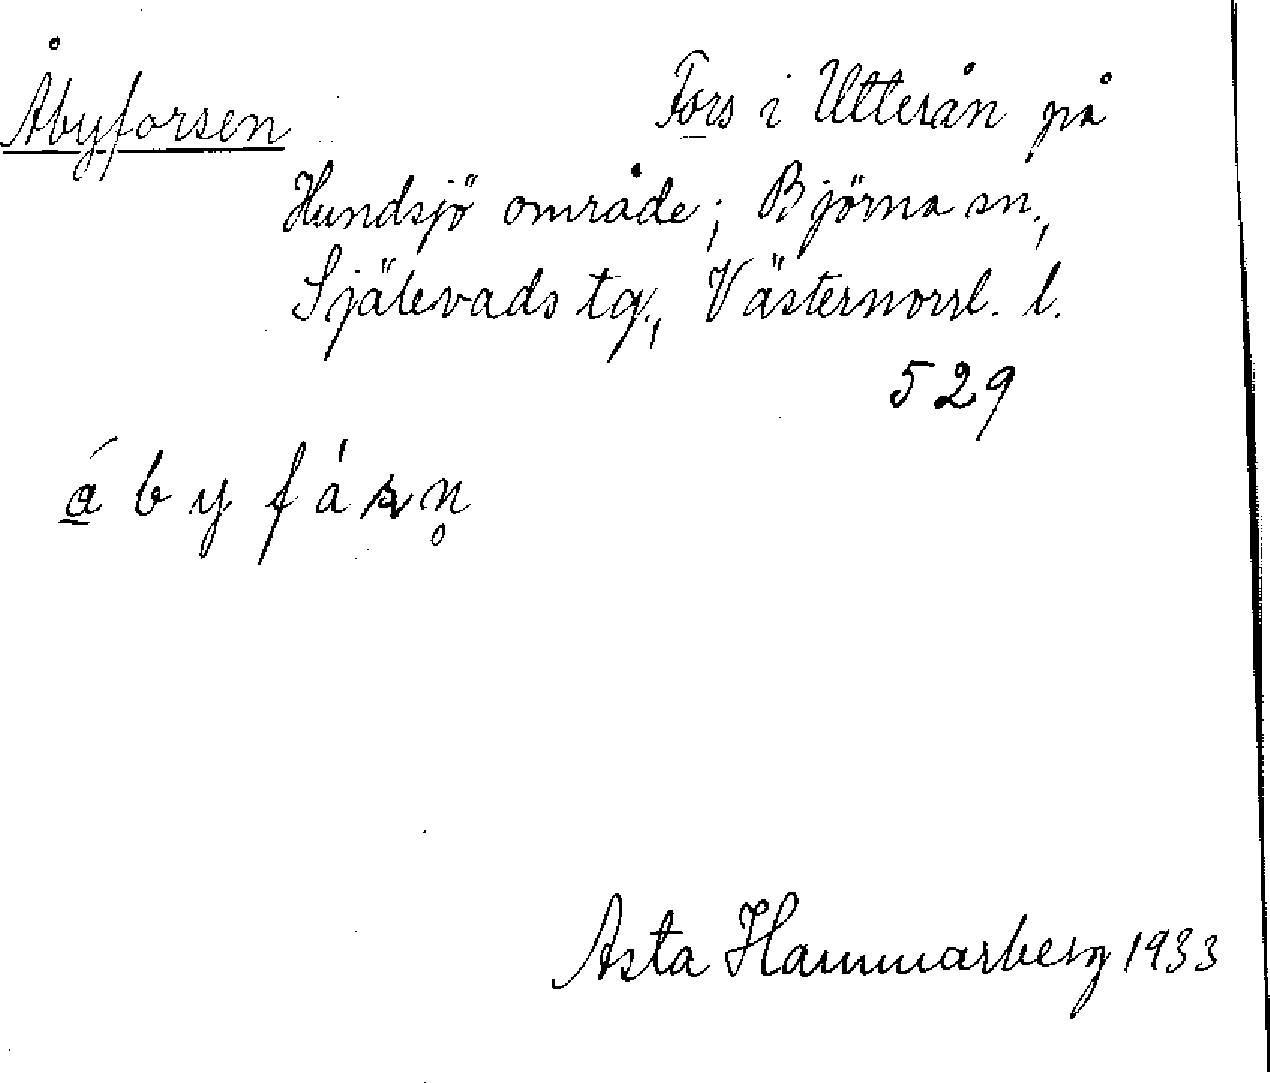 Åbyforsen Fors i Utterån på
Hundsjö område; Björna sn,
Själevads tg., Västernorrl. l.
529
á b y f ǻ s n̥
Asta Hammarberg 1933